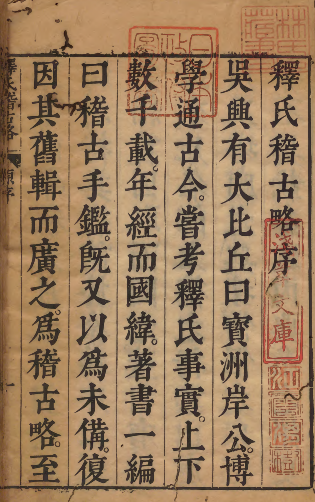 釋氏稽古略序
吳興有大比丘曰寶洲岸公。博
學通古今。嘗考釋氏事實。上下
數千載。年經而國緯。著書一編
曰稽古手鑑。旣又以爲未備。復
因其舊輯而廣之。爲稽古略。至